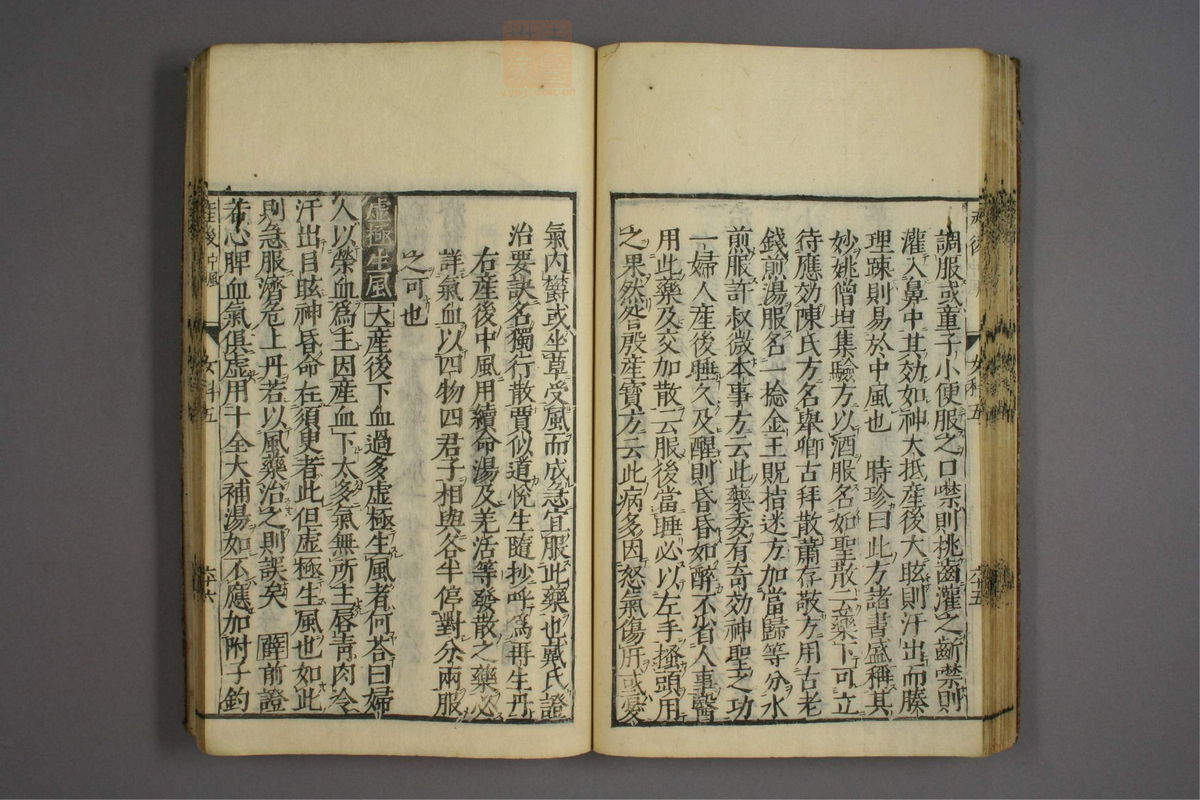 調服或童子小便服之口噤則挑齒灌之齗噤則
灌入鼻中其效如神大抵産後大眩則汗出而腠
理踈則易於中風也 時珍曰此方諸書盛稱其
妙姚僧坦集驗方以酒服名如聖散云藥下可立
待應効陳氏方名舉卿古拜散蕭存敬方用古老
錢煎湯服名一捻金王貺指迷方加當歸等分水
煎服許叔微本事方云此藥委有奇効神聖之功
一婦人産後睡久及醒則昏昏如醉不省人事醫
用此藥及交加散云服後當睡必以左手搔頭用
之果然昝殷産寶方云此病多因怒氣傷肝或憂
女科五
六十五
氣内欝或坐草受風而成急宜服此藥也戴氏證
治要訣名獨行散賈似道悅生隨抄呼爲再生丹
右産後中風用續命湯及羌活等發散之藥必
詳氣血以四物四君子相與各半停對分兩服
之可也
虛極生風 大産後下血過多虛極生風者何荅曰婦
人以榮血爲主因産血下太多氣無所主唇青肉冷
汗出目眩神昏命在須臾者此但虛極生風也如此
則急服濟危上丹若以風藥治之則誤矣 薛前證
若心脾血氣俱虛用十全大補湯如不應加附子鈎
産後中風
女科五
六十六